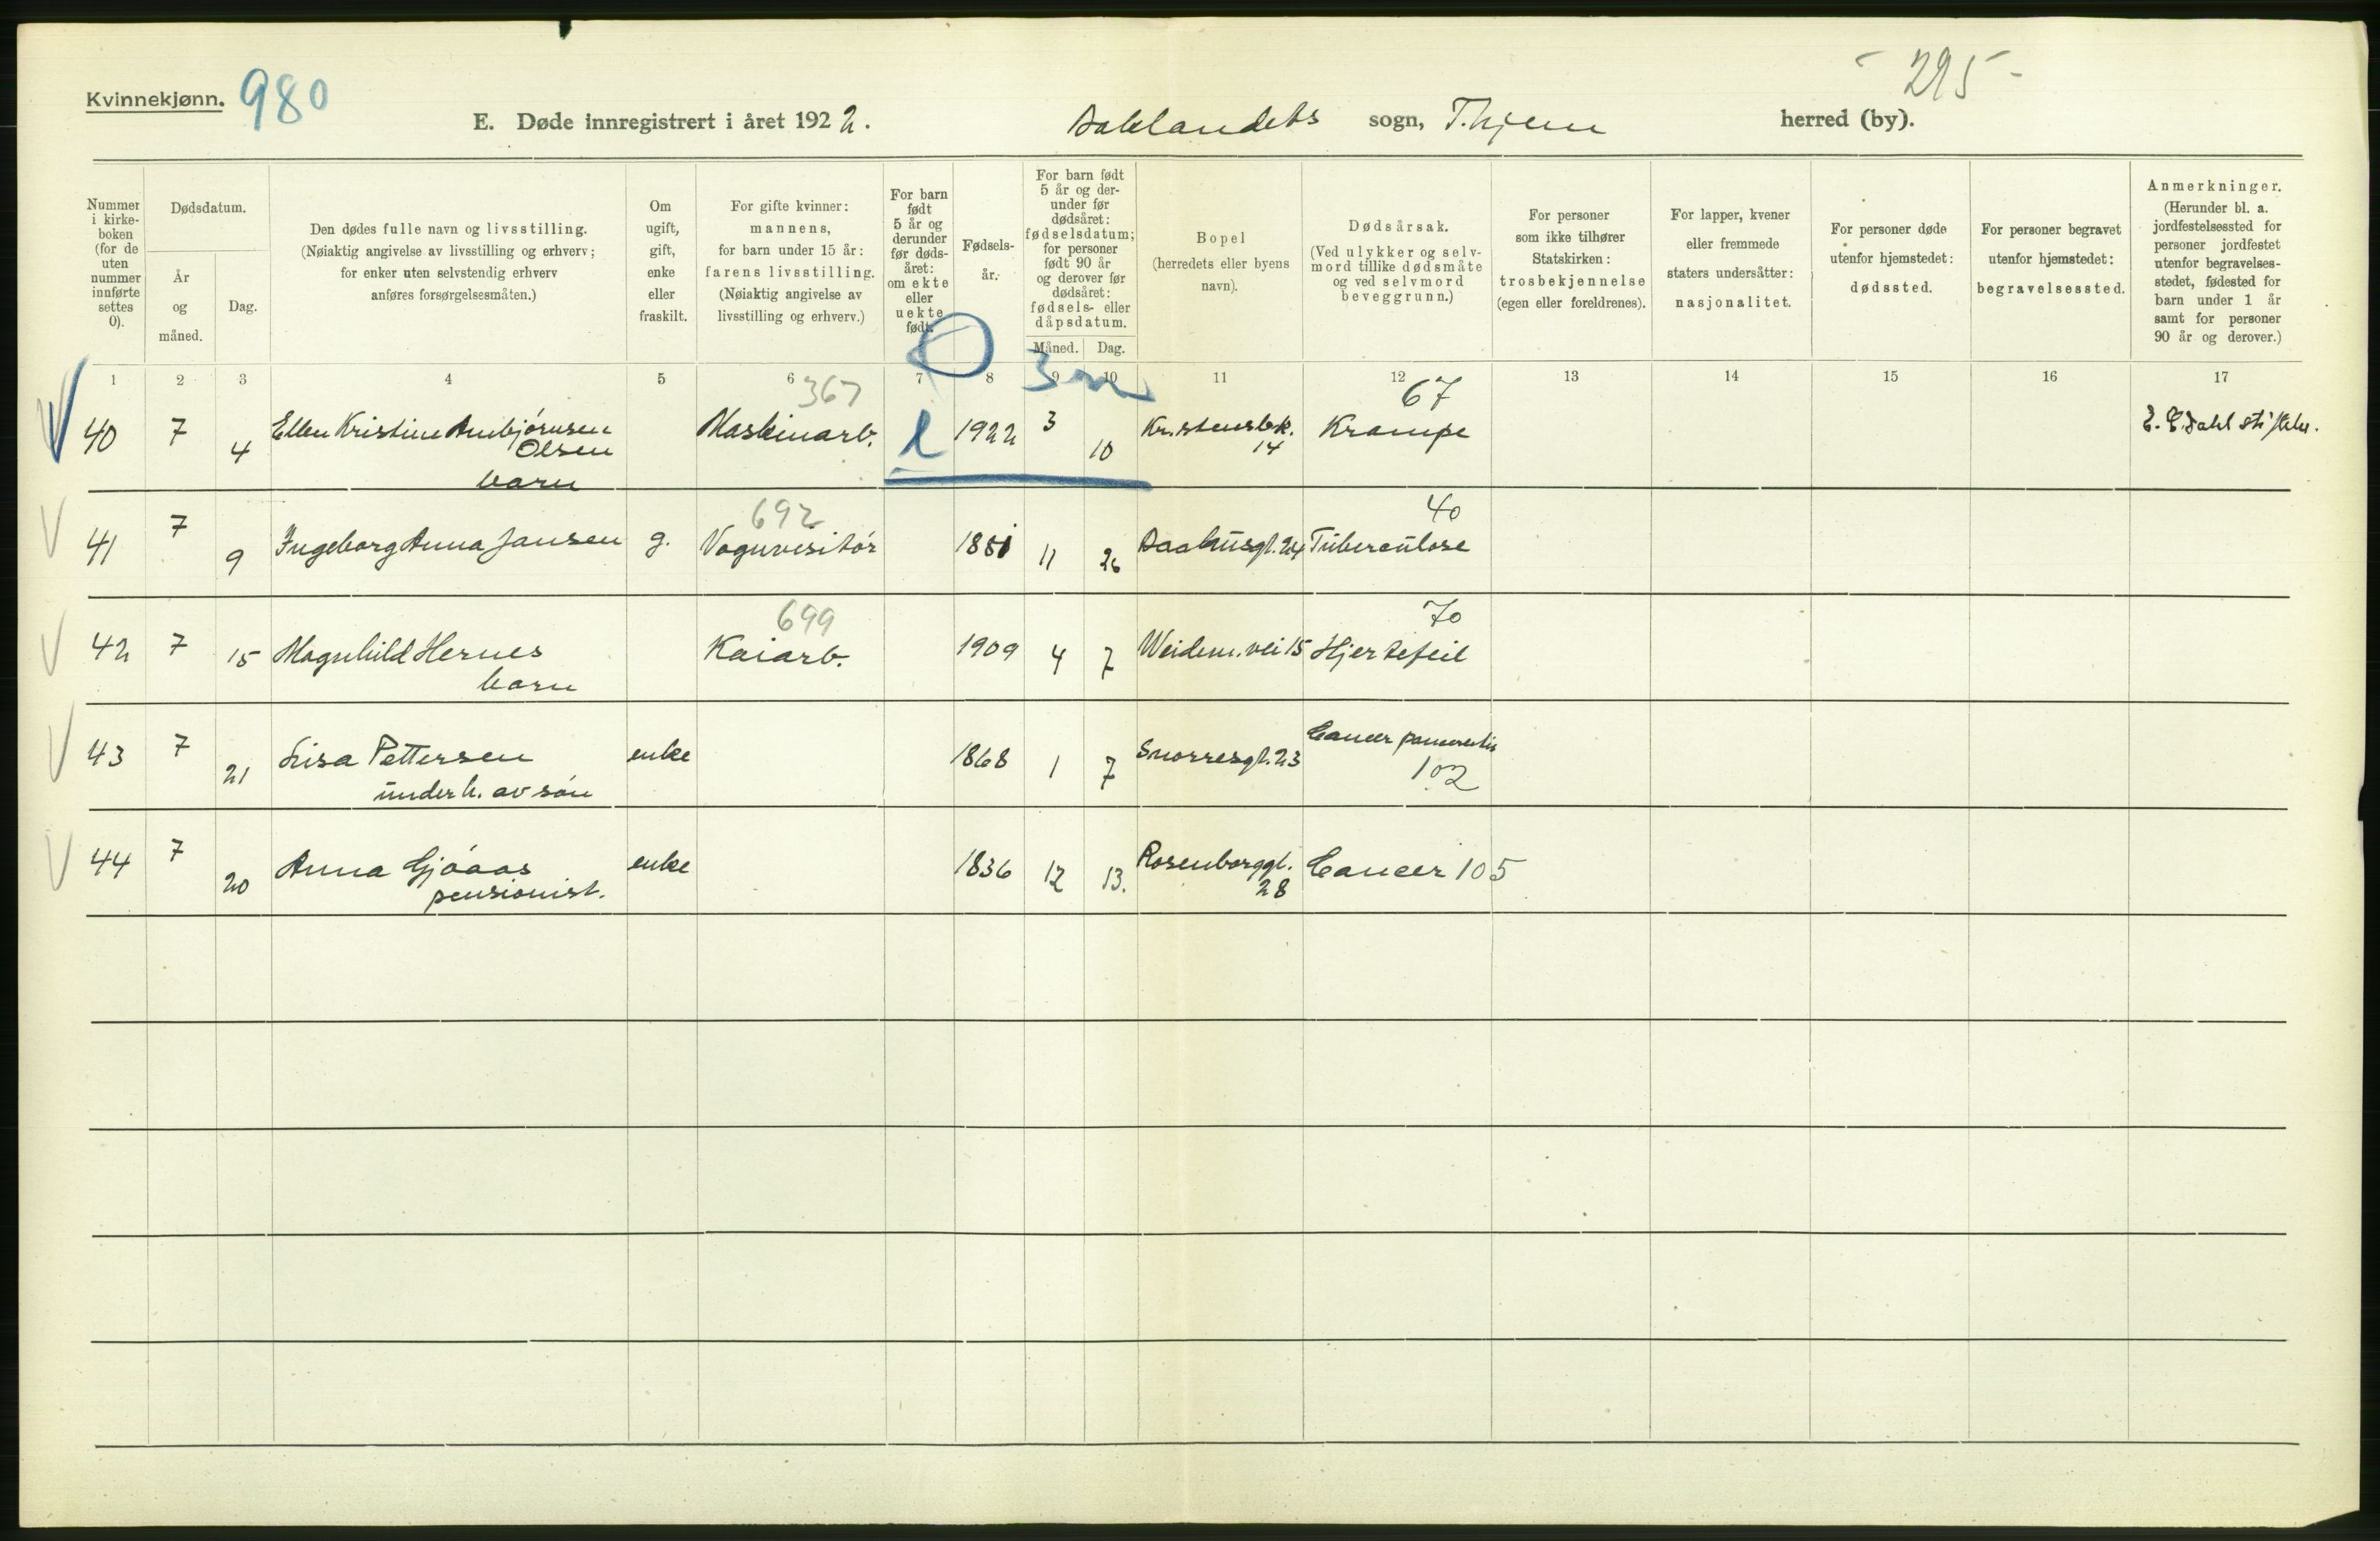 Kvinnekjønn. 980
- 295 -
E. Døde innregistrert i året 1922. Baklandets sogn, T.hjem herred (by).
Nummer i kirkeboken (for de uten nummer innførte settes 0).
Dødsdatum.
År og måned.
Dag.
Den dødes fulle navn og livsstilling.
(Nøiaktig angivelse av livsstilling og erhverv;
for enker uten selvstendig erhverv
anføres forsørgelsesmåten.)
Om
ugift,
gift,
enke
eller
fraskilt.
For gifte kvinner:
mannens,
for barn under 15 år:
farens livsstilling.
(Nøiaktig angivelse av
livsstilling og erhverv.)
For barn
født
5 år og
derunder
før døds-
året:
om ekte
eller
uekte
født.
Fødsels-
år.
For barn født
5 år og der-
under før
dødsåret:
fødselsdatum;
for personer
født 90 år
og derover før
dødsåret:
fødsels- eller
dåpsdatum.
Måned. Dag.
Bopel
(herredets eller byens
navn).
Dødsårsak.
(Ved ulykker og selv-
mord tillike dødsmåte
og ved selvmord
beveggrunn.)
For personer
som ikke tilhører
Statskirken:
trosbekjennelse
(egen eller foreldrenes).
For lapper, kvener
eller fremmede
staters undersåtter:
nasjonalitet.
For personer døde
utenfor hjemstedet:
dødssted.
For personer begravet
utenfor hjemstedet:
begravelsessted.
Anmerkninger.
(Herunder bl. a.
jordfestelsessted for
personer jordfestet
utenfor begravelses-
stedet, fødested for
barn under 1 år
samt for personer
90 år og derover.)
1 2 3 4 5 6 7 8 9 10 11 12 13 14 15 16 17
367 3 m 67
40 7 4 Ellen Kristine Arnbjørnsen Maskinarb. 1922 3 10 Kristensbk. Krampe E. C. Dahl stiftelse.
Olsen 14
barn
692 40
41 7 9 Ingeborg Anna Jansen g. Vognvisitør 1881 11 26 24 Tuberculose
699 70
42 7 15 Magnhild Hernes Kaiarb. 1909 4 7 Weidem.vei 15 Hjertefeil
barn
43 7 21 Lisa Pettersen enke 1868 1 7 Snorresgt. 23 Cancer pancreatis
underh. av søn 102
44 7 20 Anna Gjøaas enke 1836 12 13. Rosenborggt. Cancer 105
pensionist. 28